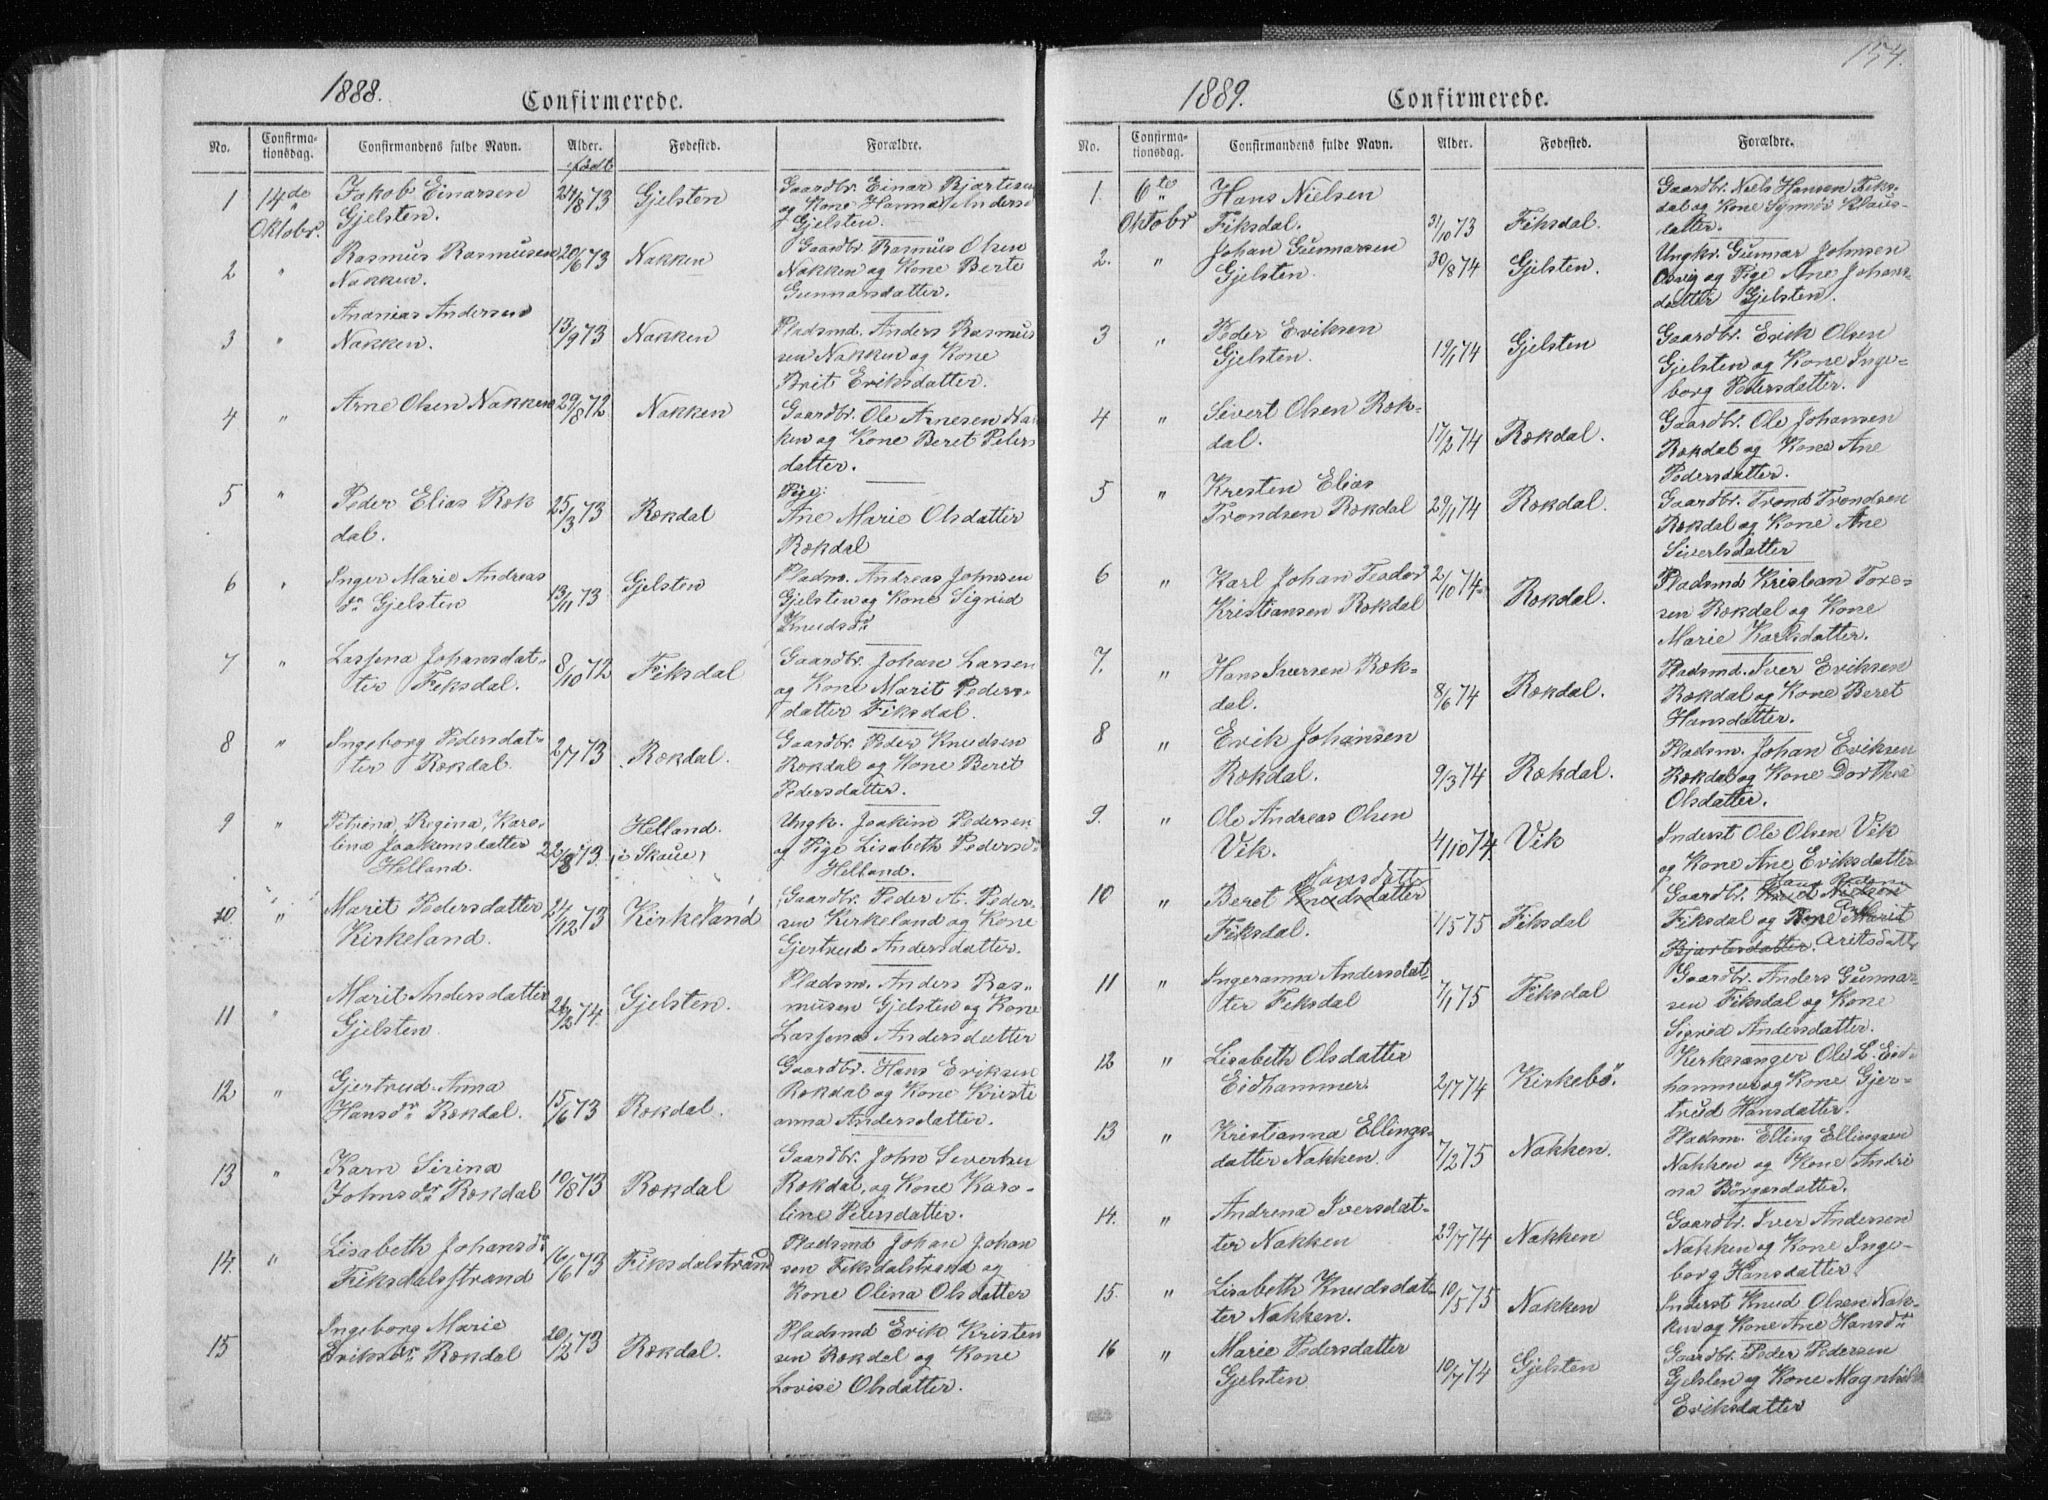 1888.
Confirmerede.
No.
Confirma-
tionsdag.
Confirmandens fulde Navn.
Alder.
født
Fødested.
Forældre.
1
14de
Oktobr.
Jakob Einarsen
Gjelsten.
24/8 73
Gjelsten
Gaardbr. Einar Bjartesen
og Kone Hanna Andersd
Gjelsten.
2
"
Rasmus Rasmusen
Nakken.
20/6 73
Nakken
Gaardbr. Rasmus Olsen
Nakken og Kone Berte
Gunnarsdatter.
3
"
Ananias Andersen
Nakken.
13/9 73
Nakken
Pladsmd. Anders Rasmus
sen Nakken og Kone
Brit Eriksdatter.
4
"
Arne Olsen Nakken
29/8 72
Nakken
Gaardbr. Ole Arnesen Na
ken og Kone Beret Peters
datter.
5
"
Peder Elias Rek
dal.
25/3 73
Rekdal
Pige:
Ane Marie Olsdatter
Rekdal
6
"
Inger Marie Andreas
dr Gjelsten
13/11 73
Gjelsten
Pladsm. Andreas Johnsen
Gjelsten og Kone Sigrid
Knudsdr
7
"
Lassena Johansdat-
ter Fiksdal.
8/10 72
Fiksdal
Gaardbr. Johan Larsen
og Kone Marit Peders-
datter Fiksdal.
8
"
Ingeborg Pedersdat-
ter Rekdal.
2/7 73
Rekdal.
Gaardbr. Peder Knudsen
Rekdal og Kone Beret
Pedersdatter.
9
"
Petrina, Regina, Karo-
lina Joakimsdatter
Helland.
22/8 73
Helland.
(i Skaue)
Ungk. Joakim Pedersen
og Pige Lisabeth Pedersd
Helland.
10.
"
Marit Pedersdatter
Kirkeland.
24/12 73
Kirkeland
Gaardbr. Peder A. Peder-
sen Kirkeland og Kone
Gjertrud Andersdatter.
11
"
Marit Andersdatter
Gjelsten
26/2 74.
Gjelsten.
Pladsm. Anders Ras-
musen Gjelsten og Kone
Lassena Andersdatter
12
"
Gjertrud Anna
Hansdr Rekdal.
15/6 73
Rekdal.
Gaardbr. Hans Eriksen
Rekdal og Kone Kristi
anna Andersdatter.
13
"
Karn Sirina
Johnsdr Rekdal
10/8 73
Rekdal
Gaardbr. John Sivertsen
Rekdal, og Kone Karo-
line Petersdatter.
14.
"
Lisabeth Johansdr
Fiksdalsstrand
16/6 73
Fiksdalstrand
Pladsmd Johan Johan
sen Fiksdalstrand og
Kone Olina Olsdatter
15
Ingeborg Marie
Eriksdr Rekdal
20/12 73
Rekdal.
Pladsmd Erik Kristen
sen Rekdal og Kone
Lovise Olsdatter.
154.
1889.
Confirmerede.
No.
Confirma-
tionsdag.
Confirmandens fulde Navn.
Alder.
Fødested.
Forældre.
1.
6te
Oktobr
Hans Nielsen
Fiksdal.
31/10 73
Fiksdal.
Gaardbr. Niels Hansen Fiks-
dal og Kone Synnøv Klaus-
datter.
2.
"
Johan Gunnarsen
Gjelsten.
30/8 74
Gjelsten.
Ungkr. Gunnar Johnsen
og Pige Ane Johans-
datter Gjelsten.
3
"
Peder Eriksen
Gjelsten.
19/1 74
Gjelsten
Gaardbr. Erik Olsen
Gjelsten og Kone Inge-
borg Petersdatter.
4
"
Sivert Olsen Rek-
dal.
17/2 74
Rekdal.
Gaardbr. Ole Johansen
Rekdal og Kone Ane
Pedersdatter.
5
"
Kresten Elias
Trondsen Rekdal
29/1 74
Rekdal.
Gaardbr. Trond Trondsen
Rekdal og Kone Ane
Sivertsdatter
6
"
Karl Johan Teodor
Kristiansen Rekdal
2/10 74
Rekdal.
Pladsmd Kristian Tore-
sen Rekdal og Kone
Marie Karlsdatter.
7.
"
Hans Iversen Rek-
dal.
8/6 74
Rekdal.
Pladsmd. Iver Eriksen
Rekdal og Kone Beret
Hansdatter.
8
"
Erik Johansen
Rekdal.
9/3 74
Rekdal.
Pladsm. Johan Eriksen
Rekdal og Kone Dorthea
Olsdatter.
9.
"
Ole Andreas Olsen
Vik.
4/10 74
Vik
Inderst Ole Olsen Vik
og Kone Ane Eriksdatter
10
"
Hansdatter
Beret Knudsdatter
Fiksdal.
1/5 75
Fiksdal
Hans Pedersen
Gaardbr. Knud Nielsen
Fiksdal og Kone Marit
Bjartesdatter. Aritsdatter
11
"
Ingeranna Andersdat-
ter Fiksdal
7/1 75
Fiksdal
Gaardbr. Anders Gunnar-
sen Fiksdal og Kone
Sigrid Andersdatter.
12
"
Lisabeth Olsdatter
Eidhammer
2/7 74
Kirkebö.
Kirkesanger Ole L. Eid-
hammer og Kone Gjer-
trud Hansdatter.
13
"
Kristianna Ellings-
datter Nakken.
7/2 75
Nakken.
Pladsm. Elling Ellingsen
Nakken og Kone Andri
na Börgesdatter.
14.
"
Andrena Iversdat-
ter Nakken
29/7 74
Nakken
Gaardbr. Iver Andersen
Nakken og Kone Inge-
borg Hansdatter
15.
"
Lisabeth Knudsdat-
ter Nakken.
10/5 75
Nakken
Inderst Knud Olsen Nak-
ken og Kone Ane Hansdr
16
"
Marie Pedersdatter
Gjelsten
10/7 74
Gjelsten
Gaardbr. Peder Pedersen
Gjelsten og Kone Magnhild
Eriksdatter